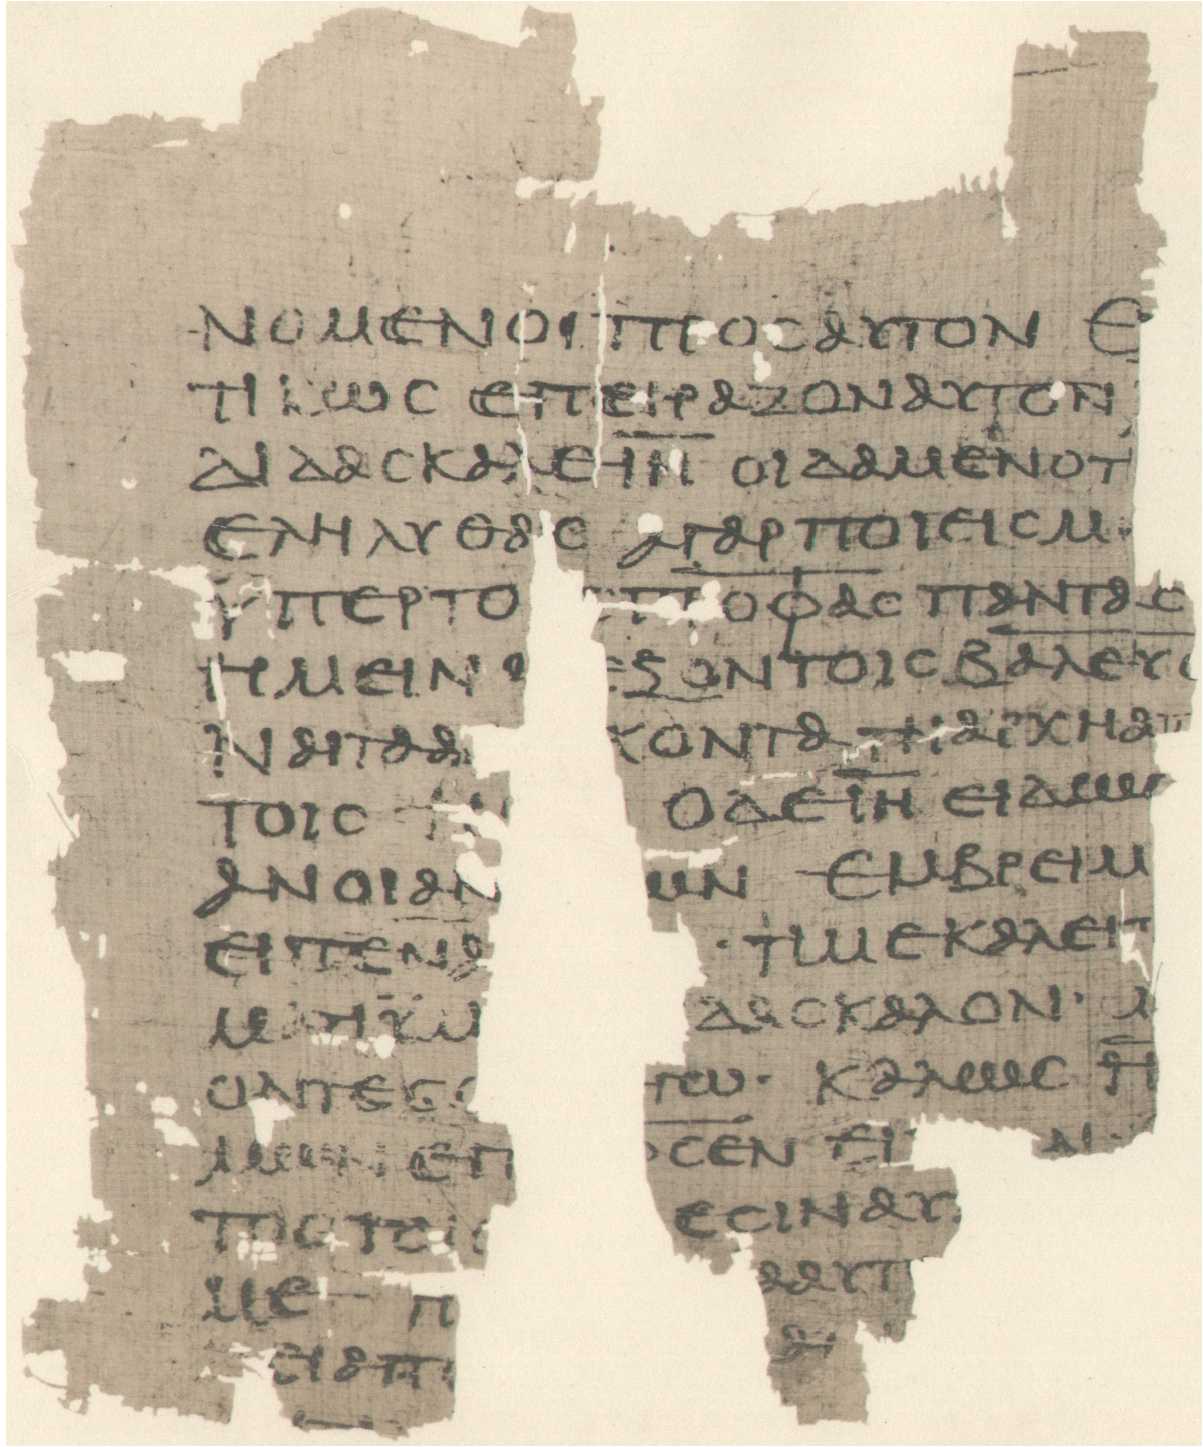 ΝΟΜΕΝΟΙ ΠΡΟϹ ΑΥΤΟΝ Ε
ΤΙΚΩϹ ΕΠΕΙΡΑΖΟΝ ΑΥΤΟΝ
ΔΙΔΑϹΚΑΛΕ ΙΗ ΟΙΔΑΜΕΝ ΟΤ
ΕΛΗΛΥΘΑϹ Α ΓΑΡ ΠΟΙΕΙϹ Μ
ΫΠΕΡ ΤΟ Ϲ ΠΡΟΦΑϹ ΠΑΝΤΑϹ
ΗΜΕΙΝ ΕΞΟΝ ΤΟΙϹ ΒΑΛΕΥϹ
ΝΑΙ ΤΑ Α ΚΟΝΤΑ ΤΗ ΑΡΧΗ ΑΠ
ΤΟΙϹ Η Μ Ο ΔΕ ΙΗ ΕΙΔΩϹ
ΑΝΟΙΑΝ ΩΝ ΕΜΒΡΕΙΜ
ΕΙΠΕΝ Α · ΤΙ ΜΕ ΚΑΛΕΙΤ
ΜΑΤΙ ΫΜ ΔΑϹΚΑΛΟΝ· Μ
ΟΝΤΕϹ Ο ΓΩ· ΚΑΛΩϹ Η
ΜΩΝ ΕΠ ϹΕΝ ΕΙ
ΤΟϹ ΤΟΙϹ ΕϹΙΝ ΑΥ
ΜΕ Η Α ΑΥΤ
ΕΙ ΑΠ